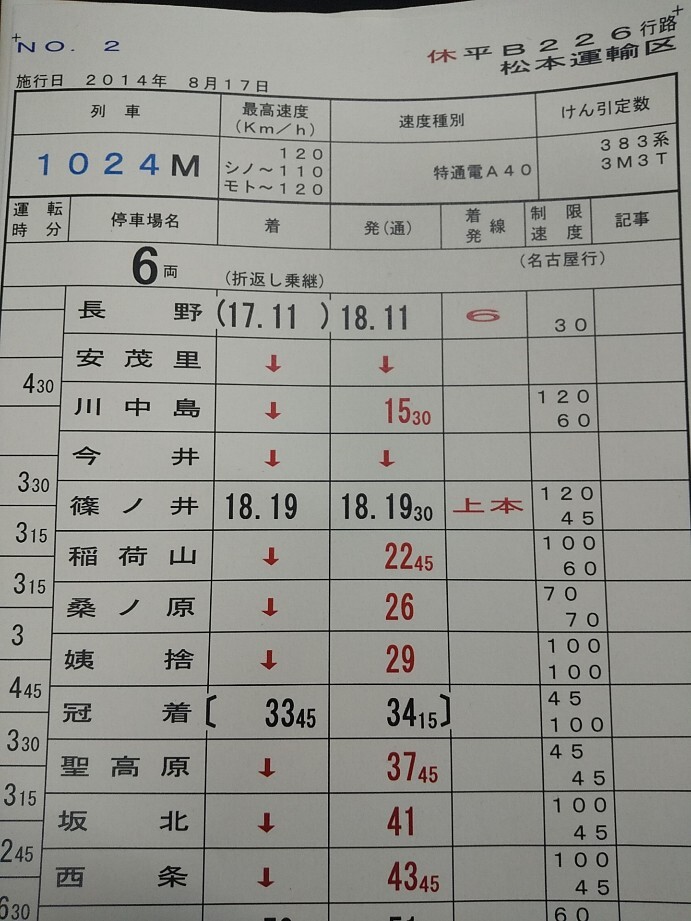 NO. 2
休平B226行路
松本運輸区
施行日 2014年 8月17日
列車 最高速度(Km/h) 速度種別 けん引定数
1024M 120 シノ~110 モト~120 特通電A40 383系 3M3T
運転時分 停車場名 着 発(通) 着発線 制限速度 記事
6両 (折返し乗継) (名古屋行)
長野 (17.11 ) 18.11 6 30
430 安茂里 ↓ ↓
川中島 ↓ 1530 120 60
今井 ↓ ↓
330 篠ノ井 18.19 18.1930 上本 120 45
315 稲荷山 ↓ 2245 100 60
315 桑ノ原 ↓ 26 70 70
3 姨捨 ↓ 29 100 100
445 冠着 〔 3345 3415 〕 45 100
330 聖高原 ↓ 3745 45 45
315 坂北 ↓ 41 100 45
245 西条 ↓ 4345 100 45
630 60